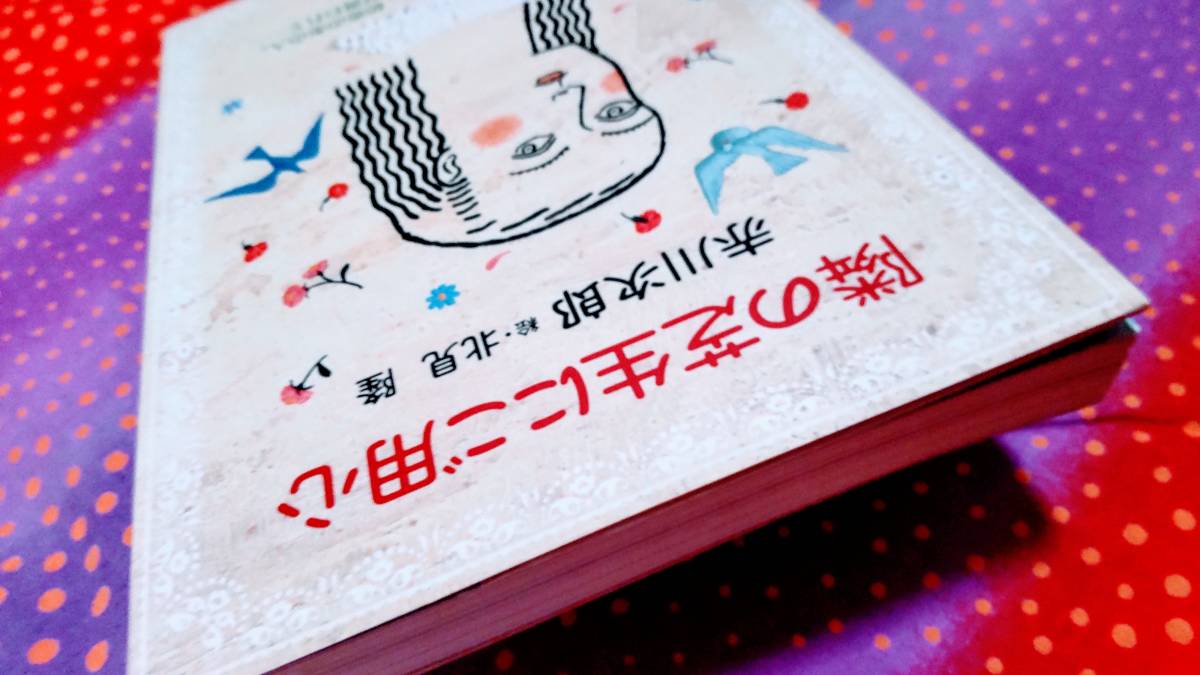 隣の芝生にご用心
赤川次郎 絵・北見 隆